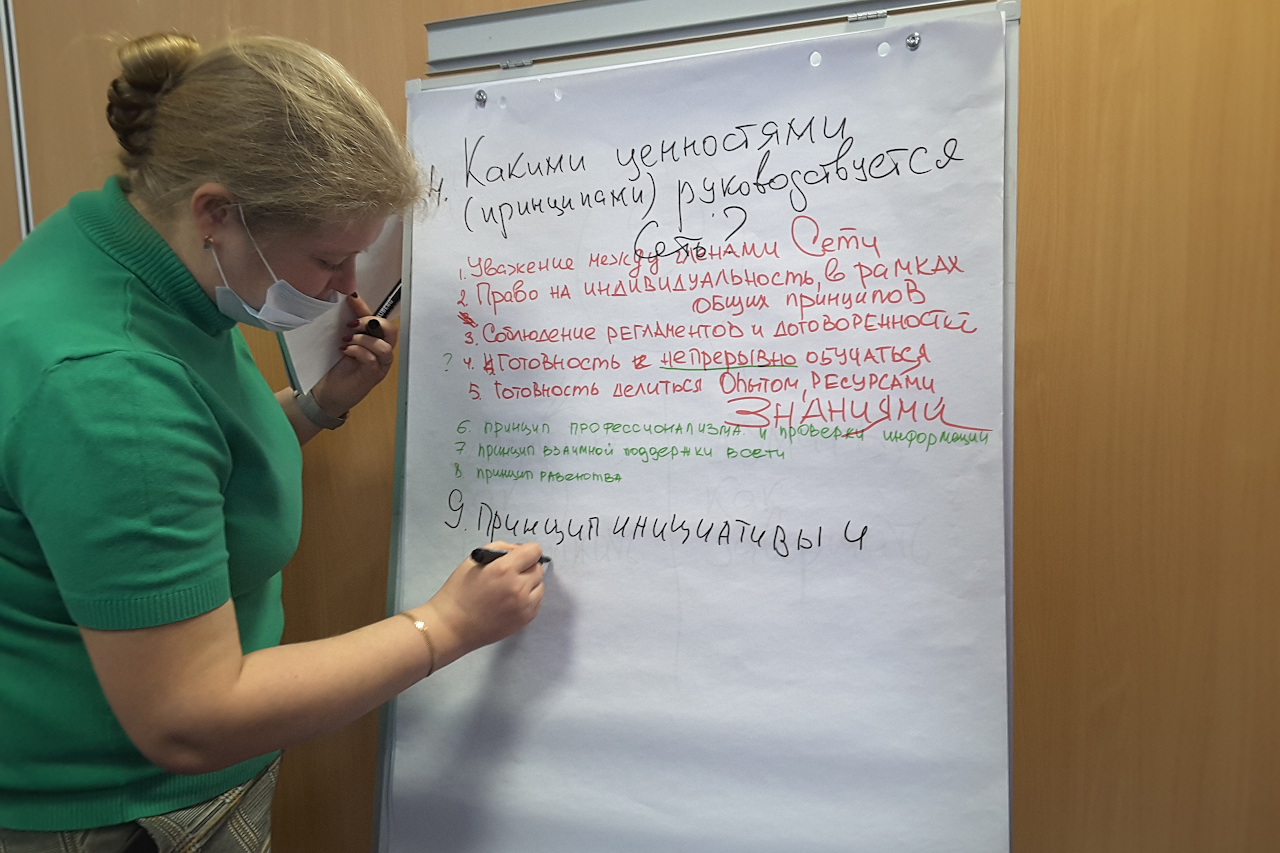 4. Какими ценностями
(принципами) руководствуется
Сеть?
1. Уважение между членами Сети
2. Право на индивидуальность, в рамках
общих принципов
3. Соблюдение регламентов и договоренностей
? 4. Готовность к непрерывно обучаться
5. Готовность делиться опытом, ресурсами,
знаниями
6. принцип профессионализма и проверки информации
7 принцип взаимной поддержки в сети
8 принцип равенства
9. Принцип инициативы и